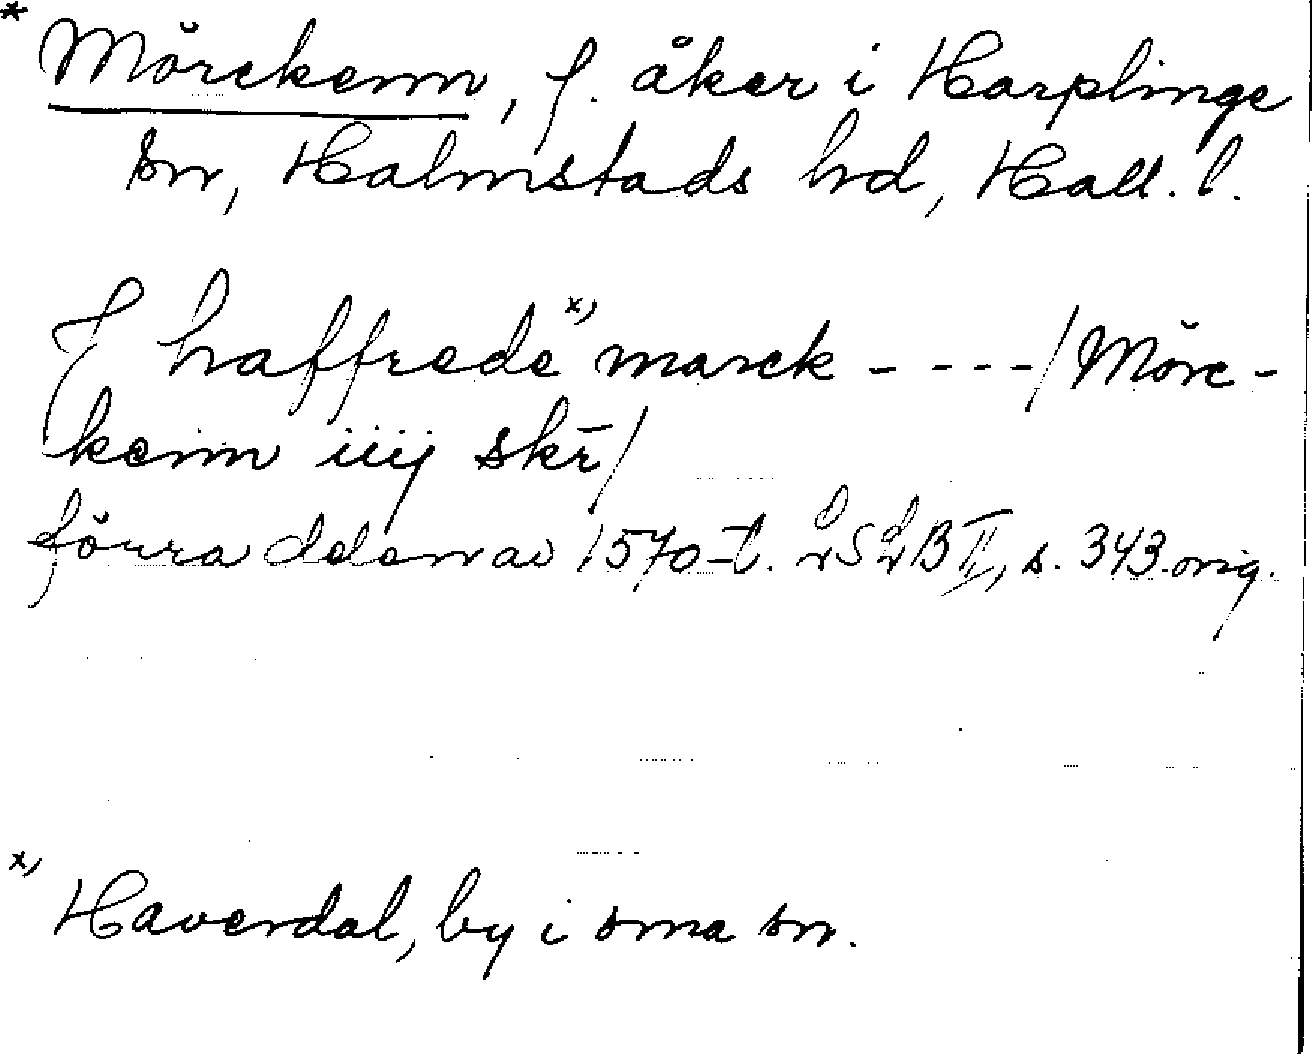 * Mörekenn, f. åker i Harplinge
sn, Halmstads hd, Hall. l.
J haffrede x) marck - - - - / Möre-
kenn iiij skr̄ /
förra delen av 1570-t. LSLB II, s. 343. orig.
x) Haverdal, by i sma sn.